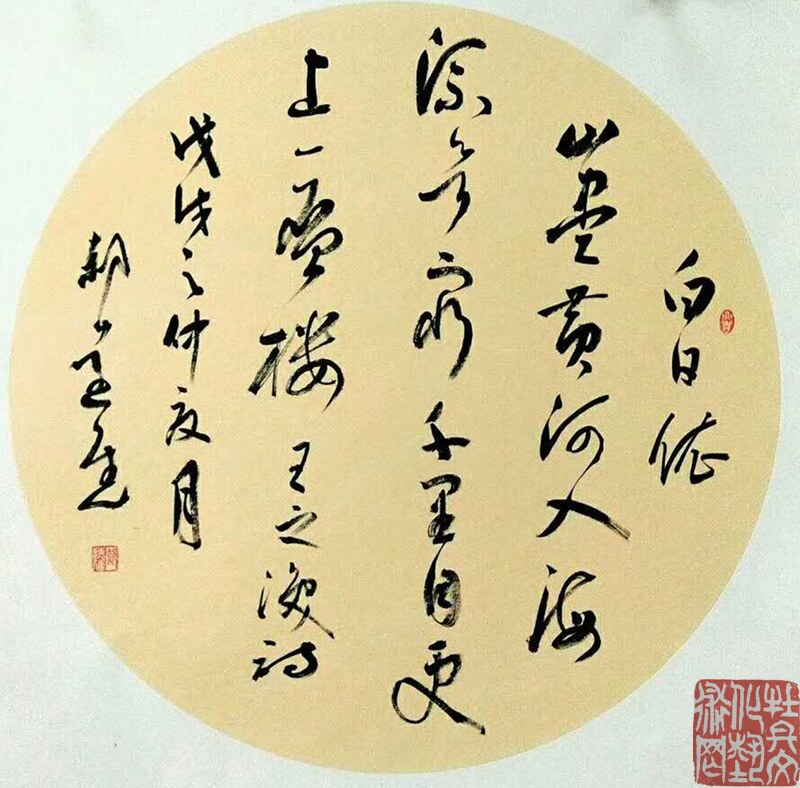 白日依
山盡黄河入海
流欲穷千里目更
上一層楼 王之涣诗
戊戌之仲夏月